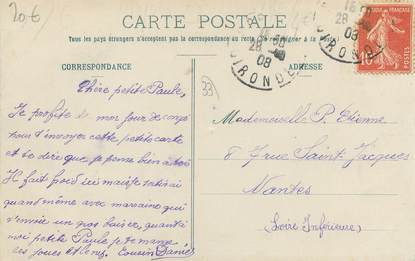 20€
CARTE POSTALE
Tous les pays étrangers n'acceptent pas la correspondance au recto (Se renseigner à la poste)
CORRESPONDANCE
ADRESSE
28
08
GIRONDE
28
08
GIRONDE
POSTES
10
33
Chère petite Paule,
Je profite de mon jour de congé
pour t'envoyer cette petite carte
et te dire que je pense bien à toi
Il fait froid ici mais je
quand même avec marraine qui
t'envoie un gros baiser, quant à
moi petite Paule je te mange
les joues et Cousin Daniel
Mademoiselle P. Etienne
8 rue Saint Jacques
Nantes
(Loire Inférieure)